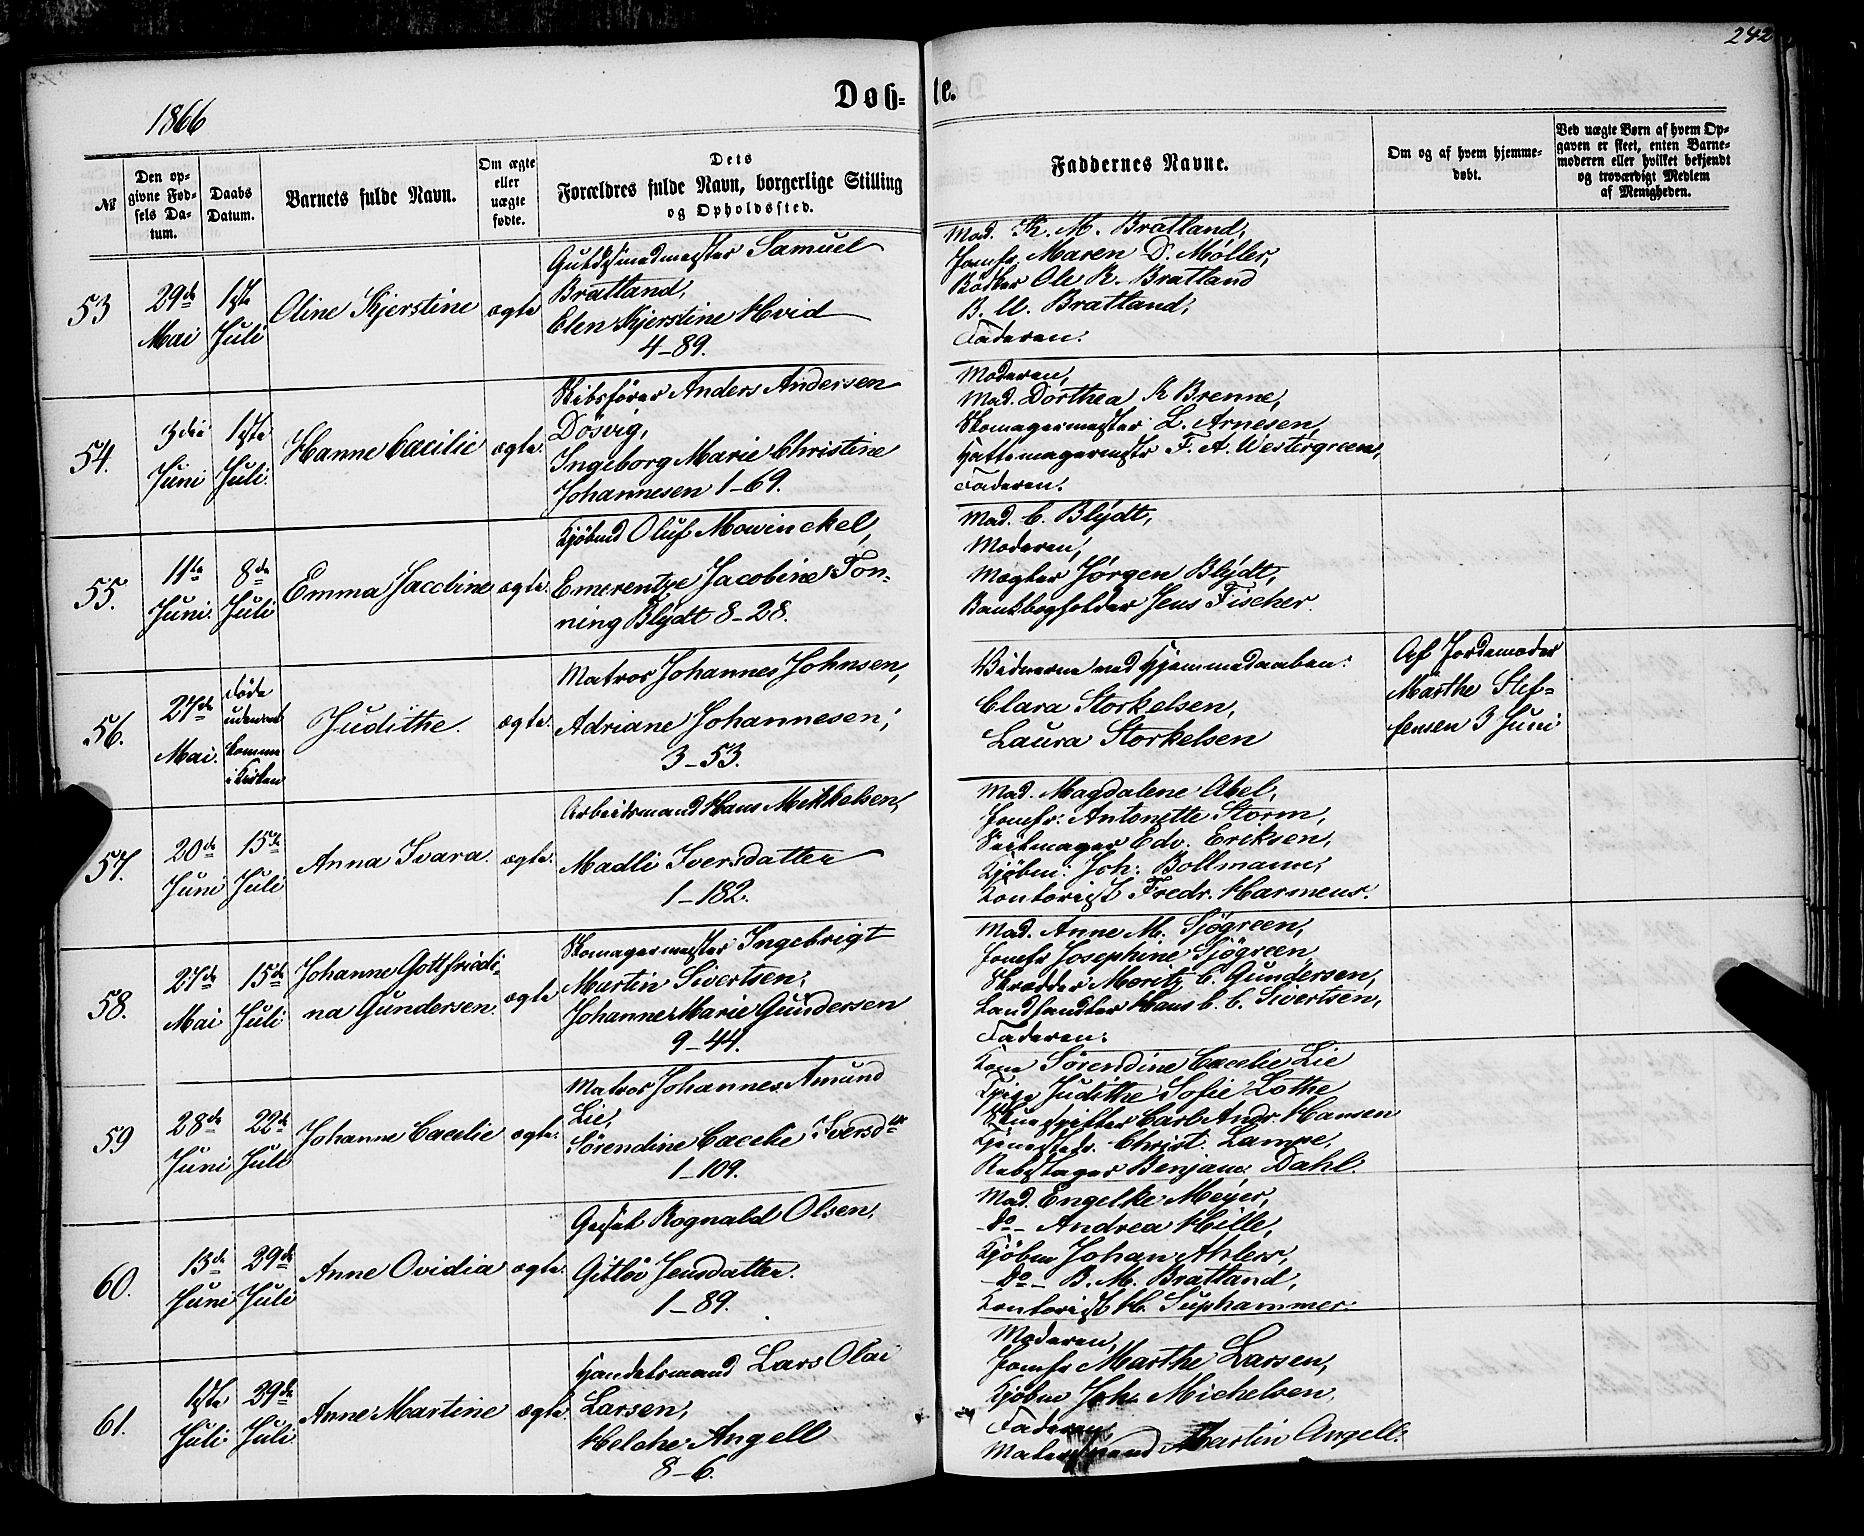 242
1866
Døb-
te.
№
Den op-
givne Fød-
sels Da-
tum.
Daabs
Datum.
Barnets fulde Navn.
Om ægte
eller
uægte
fødte.
Dets
Forældres fulde Navn, borgerlige Stilling
og Opholdssted.
Faddernes Navne.
Om og af hvem hjemme-
døbt.
Ved uægte Børn af hvem Op-
gaven er skeet, enten Barne-
moderen eller hvilket bekjendt
og troværdigt Medlem
af Menigheden.
53
29de
Mai
1ste
Juli
Oline Kjerstine
ægte
Guldsmedmester Samuel
Bratland,
Elen Kjerstine Hvid
4-89.
Mad. K. M. Bratland,
Jomfr. Maren D. Møller,
Bødker Ole R. Bratland
B. M. Bratland,
Faderen.
54.
3die
Juni
1ste
Juli.
Hanne Cæcilie
ægte.
Skibsfører Anders Andersen
Døsvig,
Ingeborg Marie Christine
Johannesen 1-69.
Moderen,
Mad. Dorthea K Brenne,
Skomagermester L. Arnesen,
Hattemagermstr F. A. Westergreen,
Faderen.
55.
11te
Juni.
8de
Juli
Emma Jacobine
ægte.
Kjøbmd Oluf Mowinckel,
Emerentze Jacobine Ton-
ning Blydt 8-28.
Mad. C. Blydt,
Moderen,
Mægler Jørgen Blydt,
Bankbogholder Jens Fischer.
56.
27de
Mai.
døde
uden at
komme
i Kirken
Judithe.
ægte.
Matros Johannes Johnsen,
Adriane Johannesen,
3-53.
Vidnerne ved Hjemmedaaben:
Clara Storkelsen,
Laura Storkelsen
Af Jordemoder
Marthe Stef-
fensen 3 Juni
57.
20de
Juni
15de
Juli
Anna Ivara.
ægte.
Arbeidsmand Hans Mikkelsen,
Madli Iversdatter
1-182.
Mad. Magdalene Abel,
Jomfr: Antonette Storm,
Seilmager Edv. Eriksen,
Kjøbm: Joh: Bollmann,
Kontorist Fredr. Harmens.
58.
27de
Mai
15de
Juli
Johanne Gottfriedi-
na Gundersen.
ægte
Skomagermester Ingebrigt
Martin Sivertsen,
Johanne Marie Gundersen
9-44.
Mad. Anne M. Sjøgreen,
Jomfr Josephine Sjøgreen,
Skrædder Moritz C. Gundersen,
Landhandler Hans C. C. Sivertsen,
Faderen.
59
28de
Juni
22de
Juli
Johanne Cæcelie
ægte.
Matros Johannes Amund
Lie,
Sørendine Cæcelie Iversdtr
1-109.
Kone Sørendine Cæcelie Lie
Pige Judithe Sofie Lothe
Carl Andr. Hansen
Christ. Lampe,
Rebslager Benjam. Dahl.
60.
13de
Juni
29de
Juli
Anne Ovidia
ægte.
Rognald Olsen,
Gitløv Jensdatter.
1-89.
Mad. Engelke Meyer,
-do- Andrea Hille,
Kjøbm Johan Ahlers,
-Do- B. M. Bratland,
Kontorist H. Suphammer.
61.
1ste
Juli
29de
Juli
Anne Martine
ægte.
Handelsmand Lars Olai
Larsen,
Helche Angell
8-6.
Moderen,
Jomfr Marthe Larsen,
Kjøbm Joh. Michelsen,
Faderen
Martin Angell.